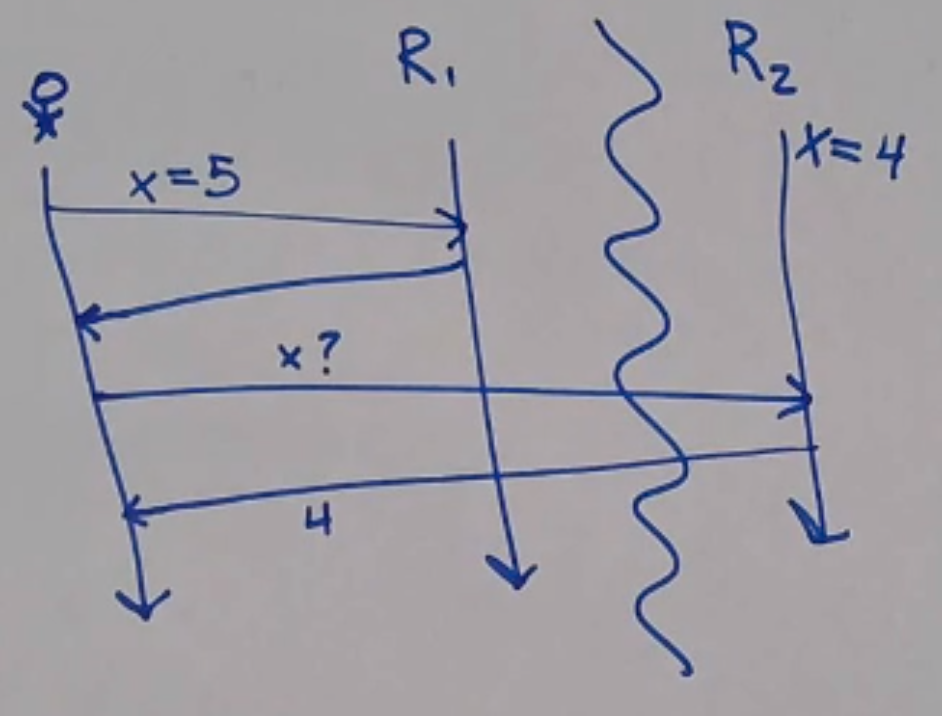 R₁
R₂
x=4
x=5
x?
4